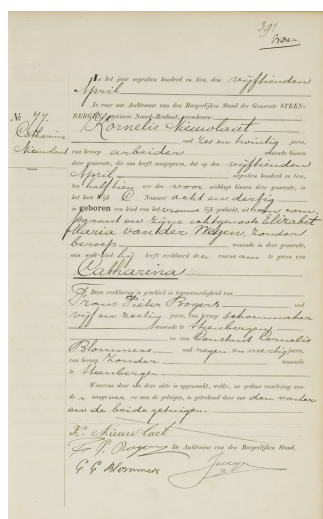 In het jaar negentien honderd en tien, den vijftienden
April
is voor ons Ambtenaar van den Burgerlijken Stand der Gemeente STEEN-
BERGEN, provincie Noord-Brabant, verschenen:
No 77
Catharina
Nieuwlaat
Kornelis Nieuwlaat
oud zes en twintig jaren,
van beroep arbeider wonende binnen
deze gemeente, die ons heeft aangegeven, dat op den vijftienden
April negentien honderd en tien,
ten half tien ure des voor middags binnen deze gemeente, in
het huis Wijk C Nummer acht en dertig
is geboren een kind van het vrouwelijk geslacht, uit hem com-
parant en zijne echtgenoote Elizabet
Maria van der Wegen, zonder
beroep wonende in deze gemeente,
aan welk kind hij heeft verklaard den voornaam te geven van
Catharina
Deze verklaring is geschied in tegenwoordigheid van
Frans Pieter Bogers oud
vijf en zestig jaren, van beroep schoenmaker
wonende te Steenbergen
en van Constant Cornelis
Blommers oud negen en veertig jaren,
van beroep zonder wonende
te Steenbergen
Waarvan door ons deze akte is opgemaakt, welke, na gedane voorlezing aan
de aangever en aan de getuigen, is geteekend door ons den aangever
en de beide getuigen.
K. Nieuwlaat
F. P. Bogers De Ambtenaar van den Burgerlijken Stand,
C C Blommers